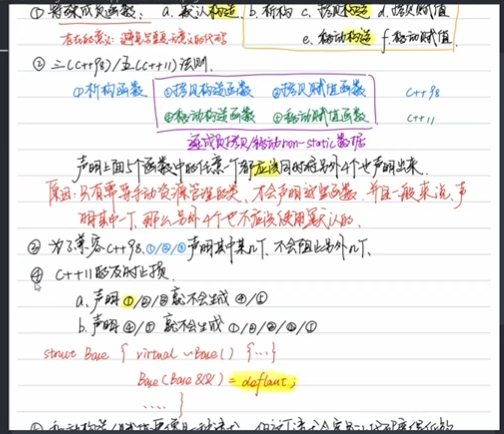 ① 特殊成员函数: a. 默认构造 b. 析构 c. 拷贝构造 d. 拷贝赋值
e. 移动构造 f. 移动赋值
存在的意义: 避免
② 三(C++98)/五(C++11)法则.
①析构函数 ②拷贝构造函数 ③拷贝赋值函数 C++98
④移动构造函数 ⑤移动赋值函数 C++11
逐成员拷贝/移动non-static数据
声明上面5个函数中的任意一个都应该同时将另外4个也声明出来.
原因: 只有需要手动资源管理的类, 才会声明这些函数. 并且一般来说, 声
明其中一个, 那么另外4个也不应该使用默认的.
③ 为了兼容C++98. ①/②/③声明其中某几个, 不会阻止另外几个.
④ C++11的及时止损.
a. 声明①/②/③就不会生成④/⑤
b. 声明④/⑤就不会生成①/②/③/④/⑤
struct Base { virtual ~Base() {...}
Base(Base &&) = deflaut;
.... }